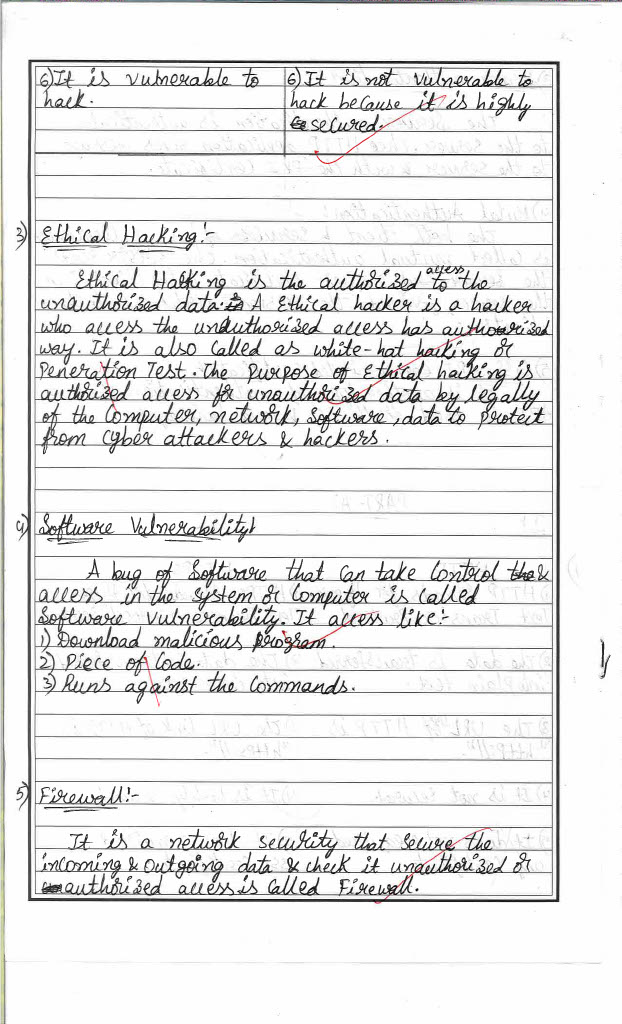 6) It is vulnerable to
hack.
6) It is not vulnerable to
hack because it is highly
secured.
3) Ethical Hacking:-
Ethical Hacking is the authorized access to the
unauthorized data. A Ethical hacker is a hacker
who access the unauthorized access has authorized
way. It is also called as white-hat hacking or
Peneration Test. The purpose of Ethical hacking is
authorized access for unauthorized data by legally
of the Computer, network, Software, data to protect
from cyber attackers & hackers.
4) Software Vulnerability
A bug of Software that can take control &
access in the system or Computer is called
Software vulnerability. It access like:-
1) Download malicious program.
2) Piece of Code.
3) Runs against the commands.
5) Firewall:-
It is a network security that secure the
incoming & outgoing data & check it unauthorized or
authorized access is called Firewall.